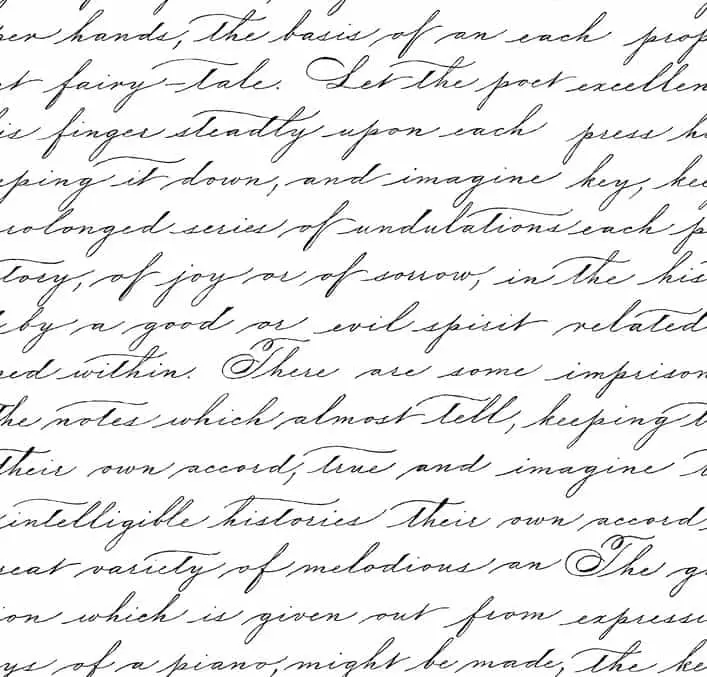 per hands, the basis of an each prop
et fairy-tale. Let the poet excellen
is finger steadtly upon each press h
eping it down, and imagine key, kee
rolonged series of undulations each p
tory, of joy or of sorrow, in the his
by a good or evil spirit related
ned within. There are some imprison
the notes which almost tell, keeping t
their own accord, true and imagine
intelligible histories their own accord,
reat variety of melodious an The g
ion which is given out from expressi
ys of a piano, might be made, the ke